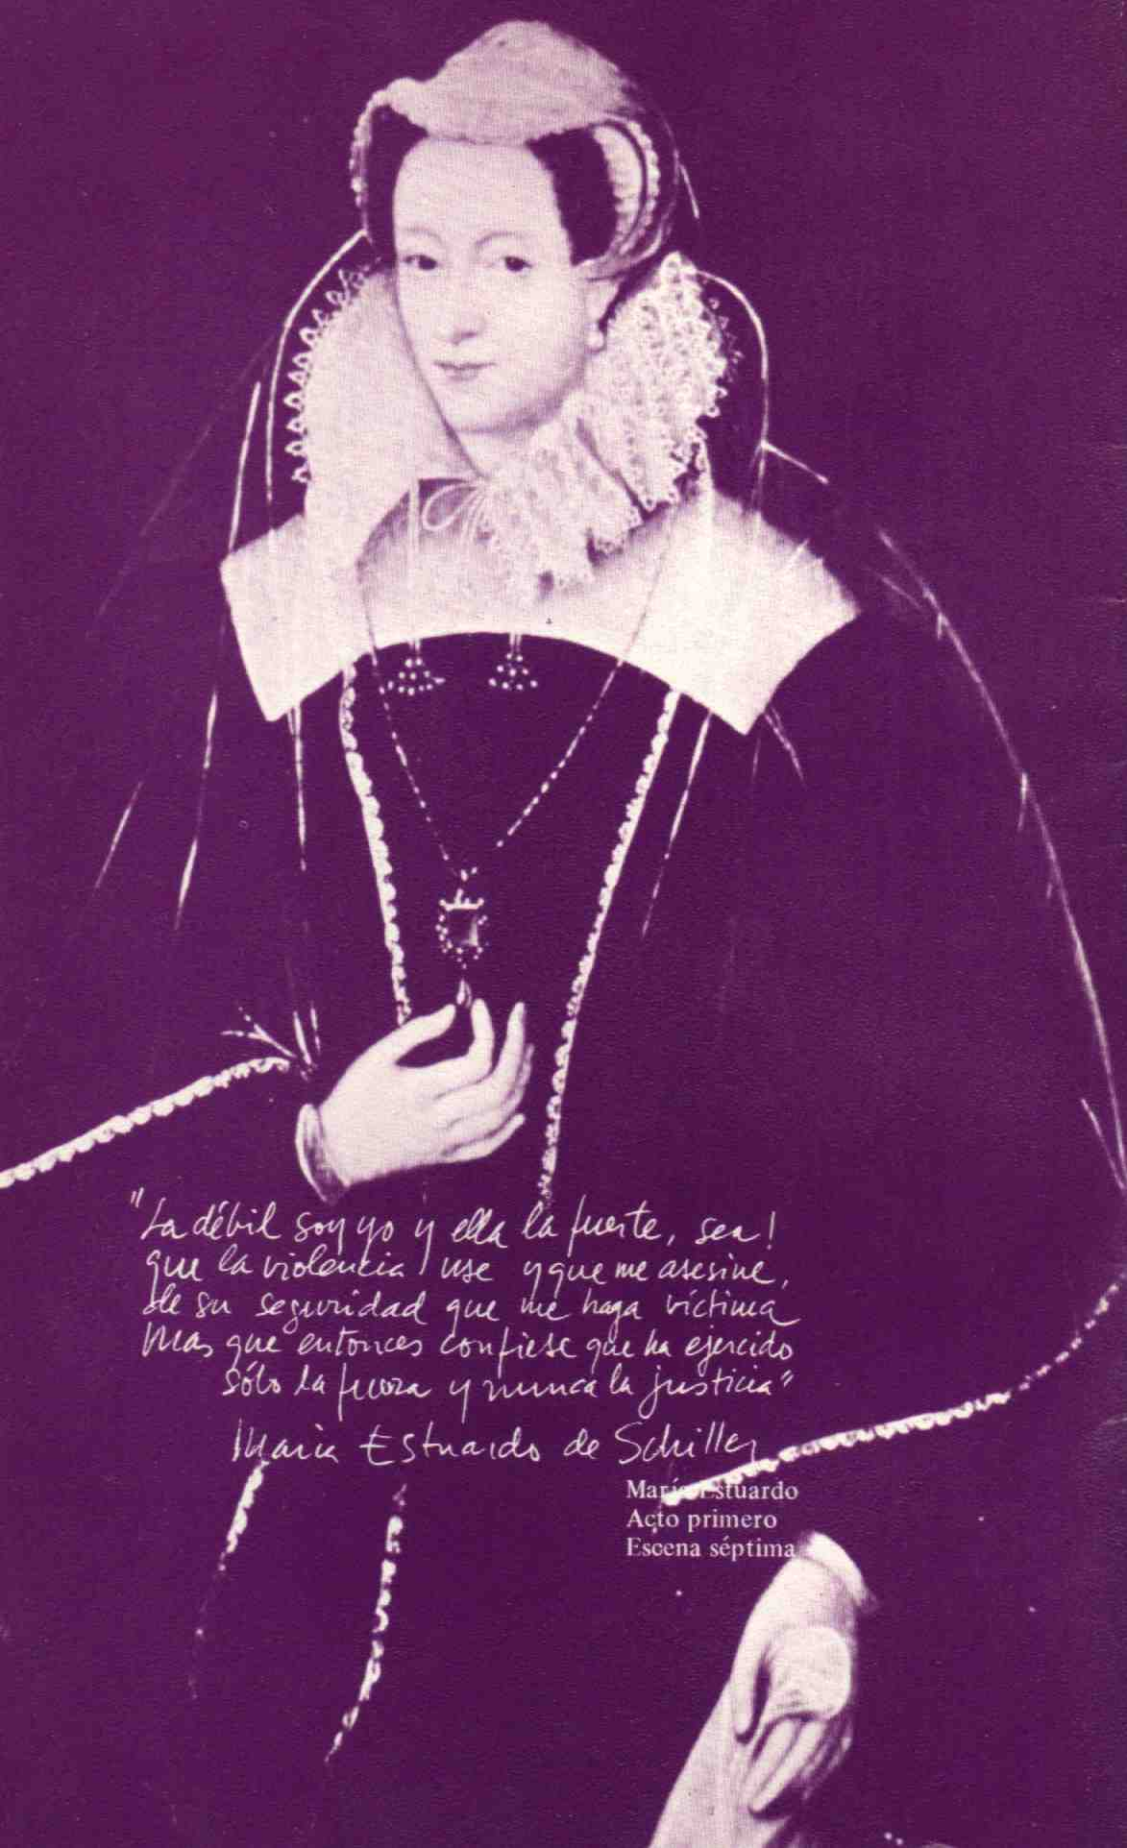 "La débil soy yo y ella la fuerte, sea!
que la violencia use y que me asesine,
de su seguridad que me haga víctima
Mas que entonces confiese que ha ejercido
sólo la fuerza y nunca la justicia"
María Estuardo de Schiller
María Estuardo
Acto primero
Escena séptima